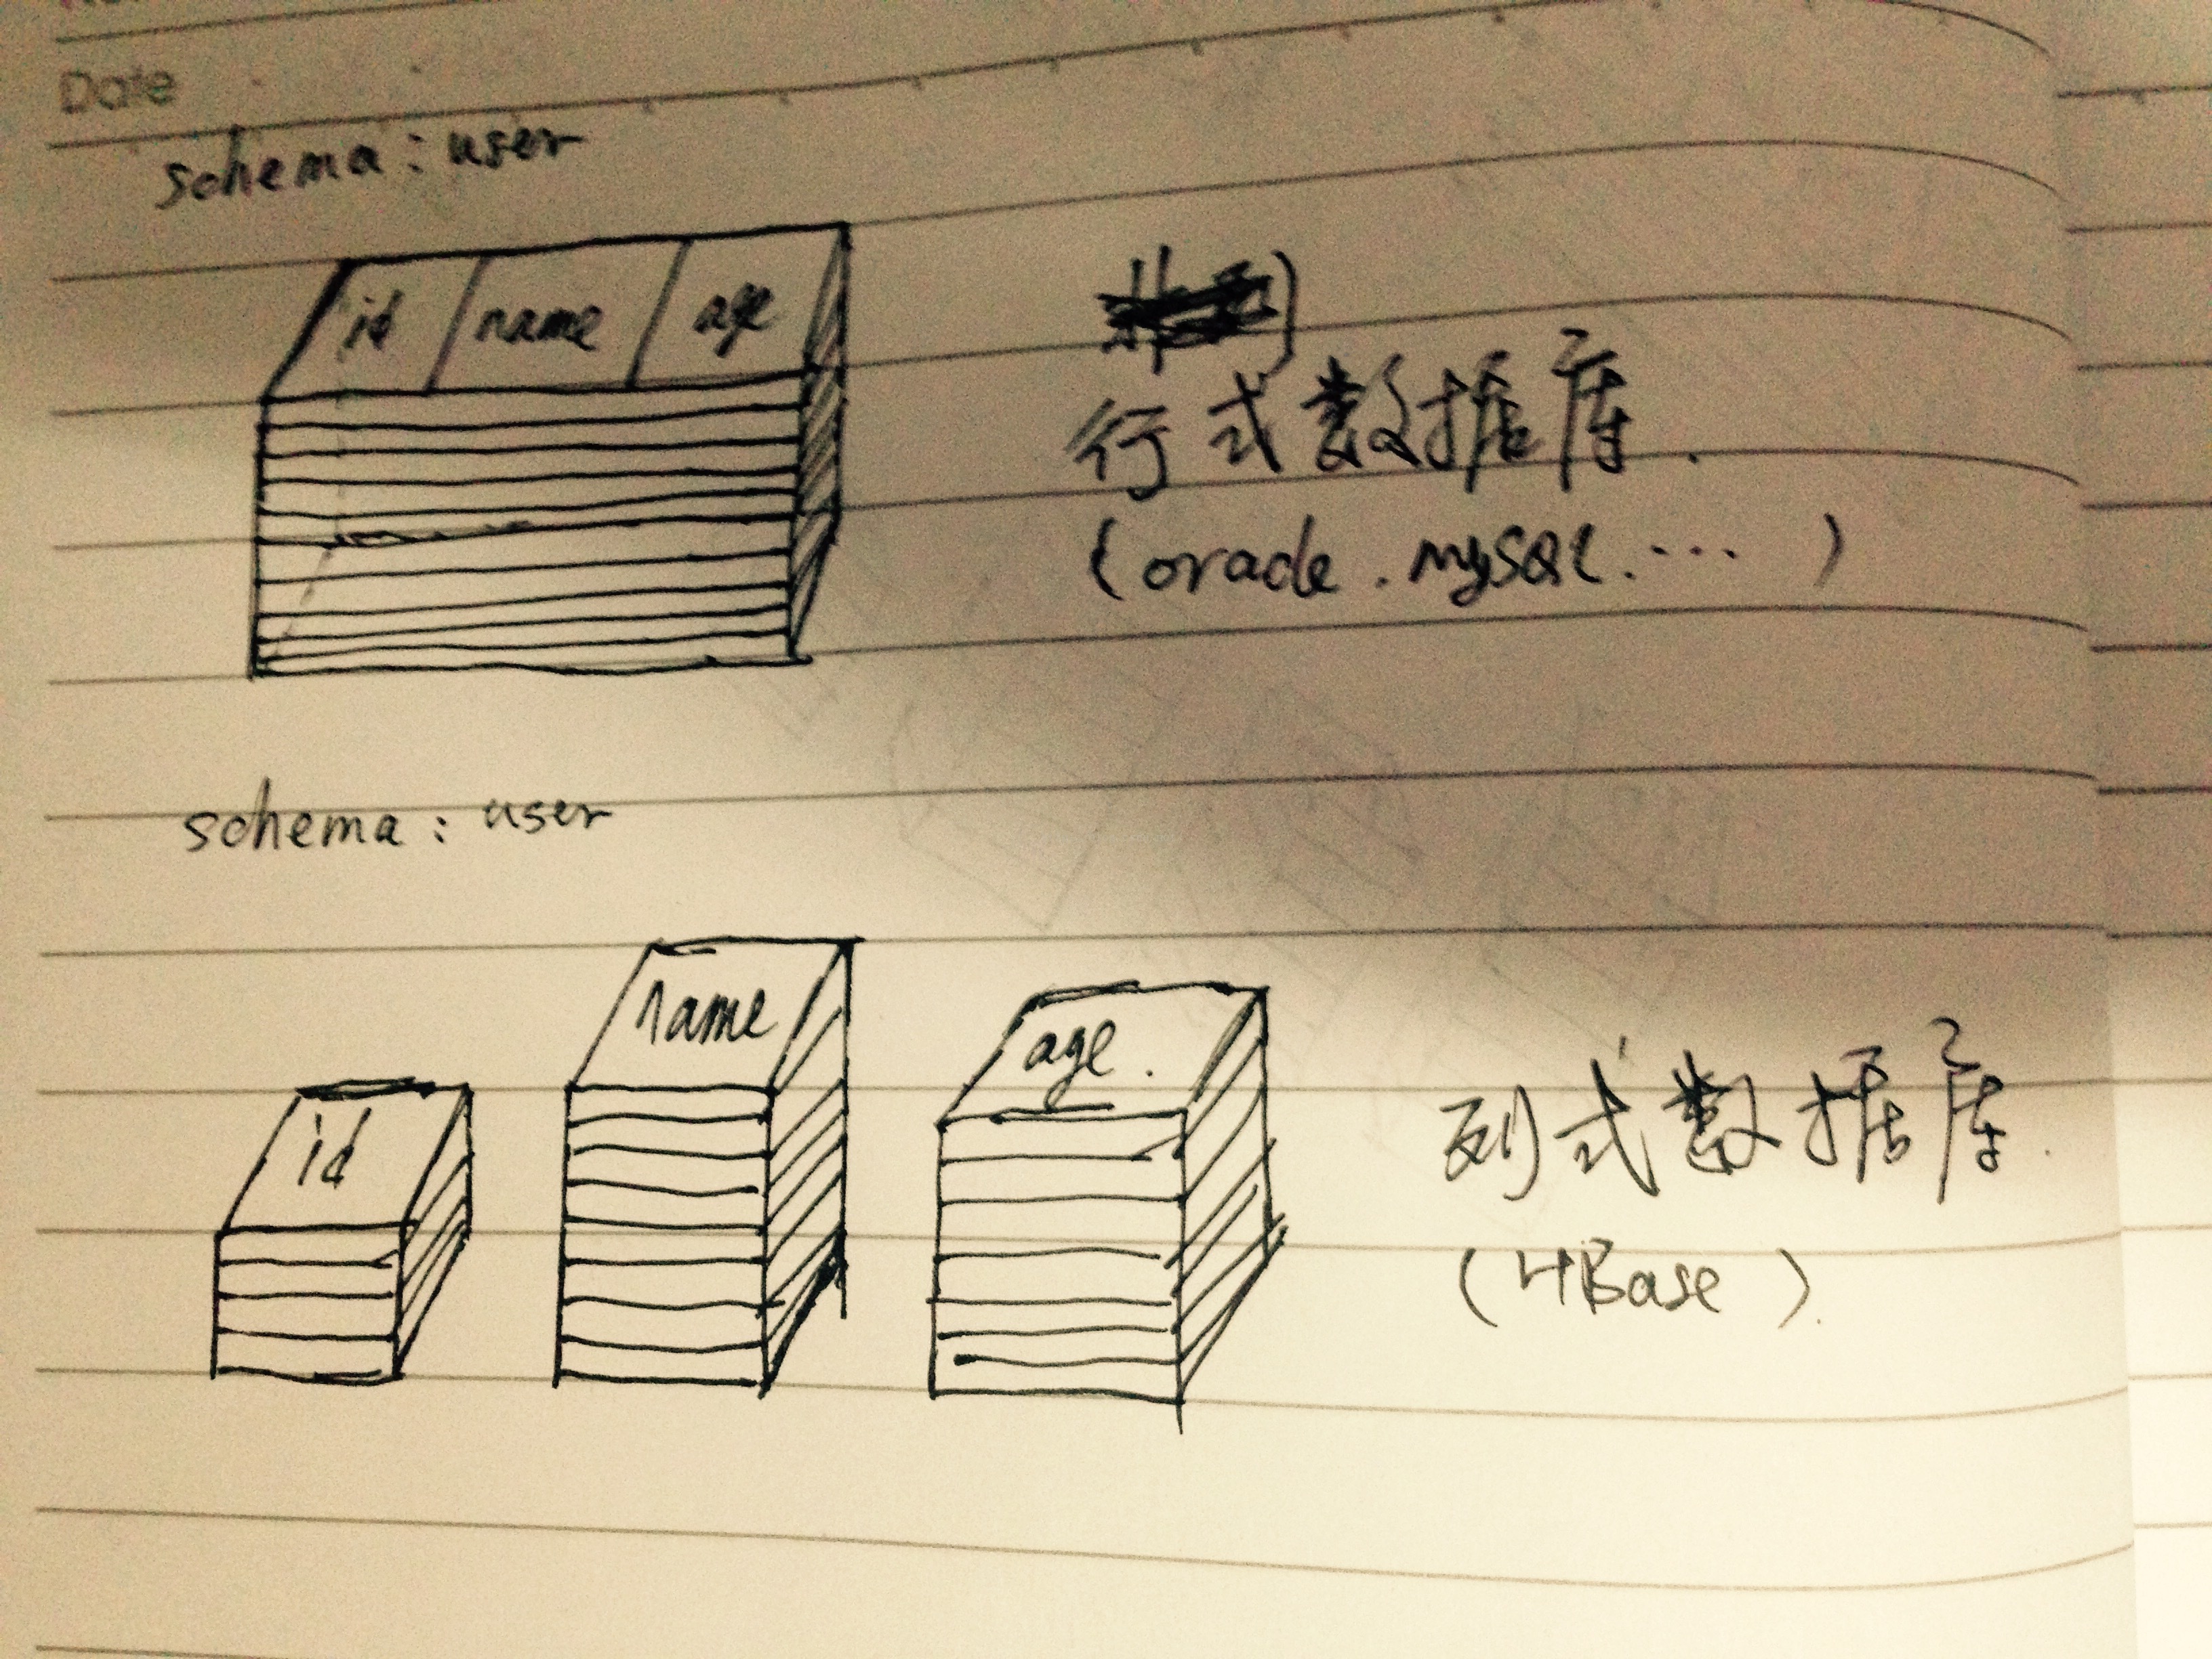 Date
schema : user
id name age
行式数据库.
(oracle . mySQL. ... )
schema : user
name
age.
id
列式数据库.
(HBase).